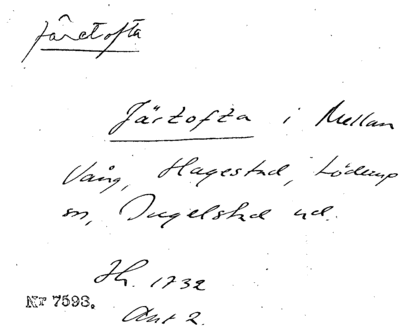 Järetofta
Järtofta i Mellan
Vång, Hagestad, Löderup
sn, Ingelstad hd.
Jb. 1732
Ant 2.
Nr 7598.